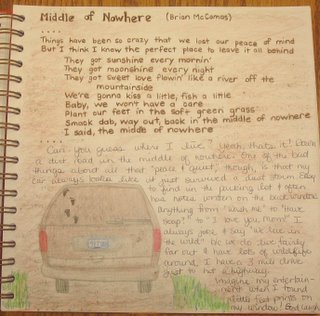 Middle of Nowhere (Brian McComas)
....
Things have been so crazy that we lost our peace of mind
But I think I know the perfect place to leave it all behind
They got sunshine every mornin'
They got moonshine every night
They got sweet love flowin' like a river off the
mountainside
We're gonna kiss a little, fish a little
Baby, we won't have a care
Plant our feet in the soft green grass
Smack dab, way out, back in the middle of nowhere
I said, the middle of nowhere
....
Can you guess where I live? Yeah, that's it! Down
a dirt road in the middle of nowhere. One of the bad
things about all that "peace & quiet", though, is that my
car always looks like it just survived a dust storm. Easy
to find in the parking lot & often
has notes written on the back window.
Anything from "wash me" to "have
soap?" to "I love you, Mom!" I
always joke & say "we live in
the wild" b/c we do live fairly
far out & have lots of wildlife
around. I have a 3 mile drive
just to hit a highway.
Imagine my entertain-
ment when I found
little feet prints on
my window!